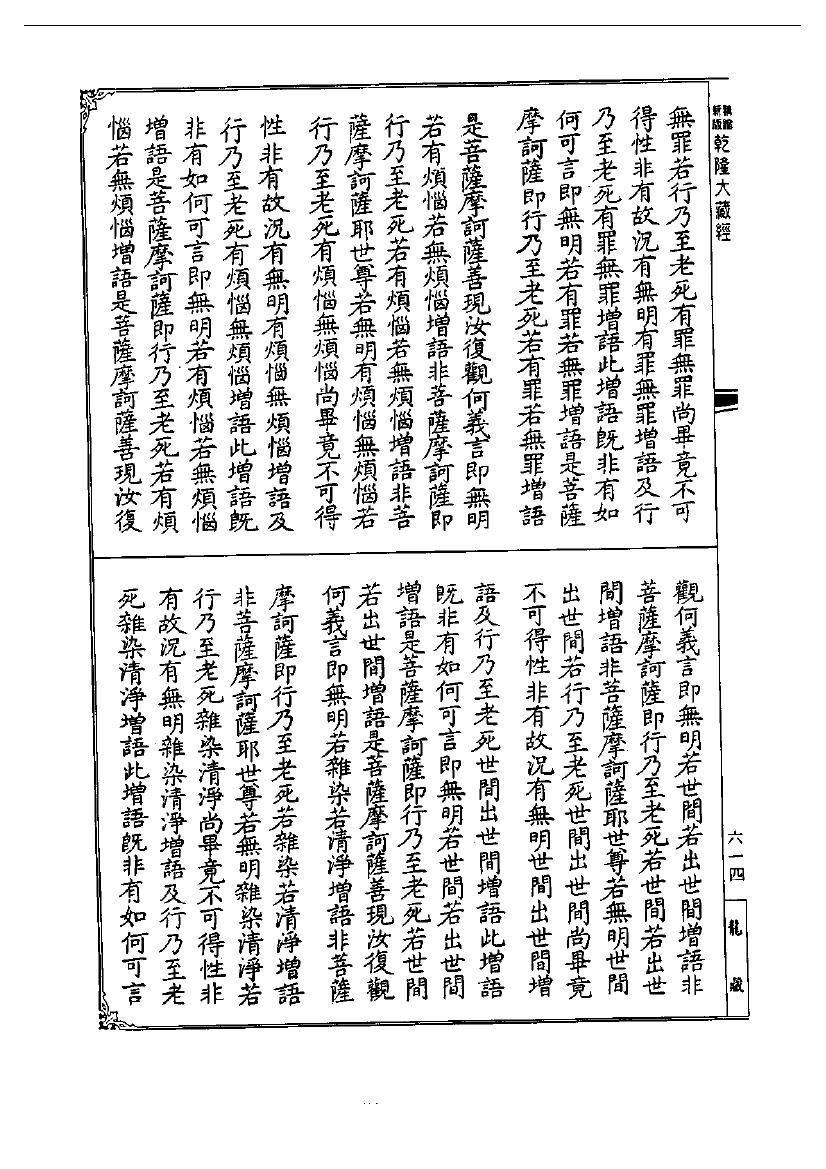 新編縮版乾隆大藏經
無罪若行乃至老死有罪無罪尚畢竟不可
得性非有故況有無明有罪無罪增語及行
乃至老死有罪無罪增語此增語既非有如
何可言即無明若有罪若無罪增語是菩薩
摩訶薩即行乃至老死若有罪若無罪增語
是菩薩摩訶薩善現汝復觀何義言即無明
若有煩惱若無煩惱增語非菩薩摩訶薩即
行乃至老死若有煩惱若無煩惱增語非菩
薩摩訶薩耶世尊若無明有煩惱無煩惱若
行乃至老死有煩惱無煩惱尚畢竟不可得
性非有故況有無明有煩惱無煩惱增語及
行乃至老死有煩惱無煩惱增語此增語既
非有如何可言即無明若有煩惱若無煩惱
增語是菩薩摩訶薩即行乃至老死若有煩
惱若無煩惱增語是菩薩摩訶薩善現汝復
觀何義言即無明若世間若出世間增語非
菩薩摩訶薩即行乃至老死若世間若出世
間增語非菩薩摩訶薩耶世尊若無明世間
出世間若行乃至老死世間出世間尚畢竟
不可得性非有故況有無明世間出世間增
語及行乃至老死世間出世間增語此增語
既非有如何可言即無明若世間若出世間
增語是菩薩摩訶薩即行乃至老死若世間
若出世間增語是菩薩摩訶薩善現汝復觀
何義言即無明若雜染若清淨增語非菩薩
摩訶薩即行乃至老死若雜染若清淨增語
非菩薩摩訶薩耶世尊若無明雜染清淨若
行乃至老死雜染清淨尚畢竟不可得性非
有故況有無明雜染清淨增語及行乃至老
死雜染清淨增語此增語既非有如何可言
六一四
龍藏